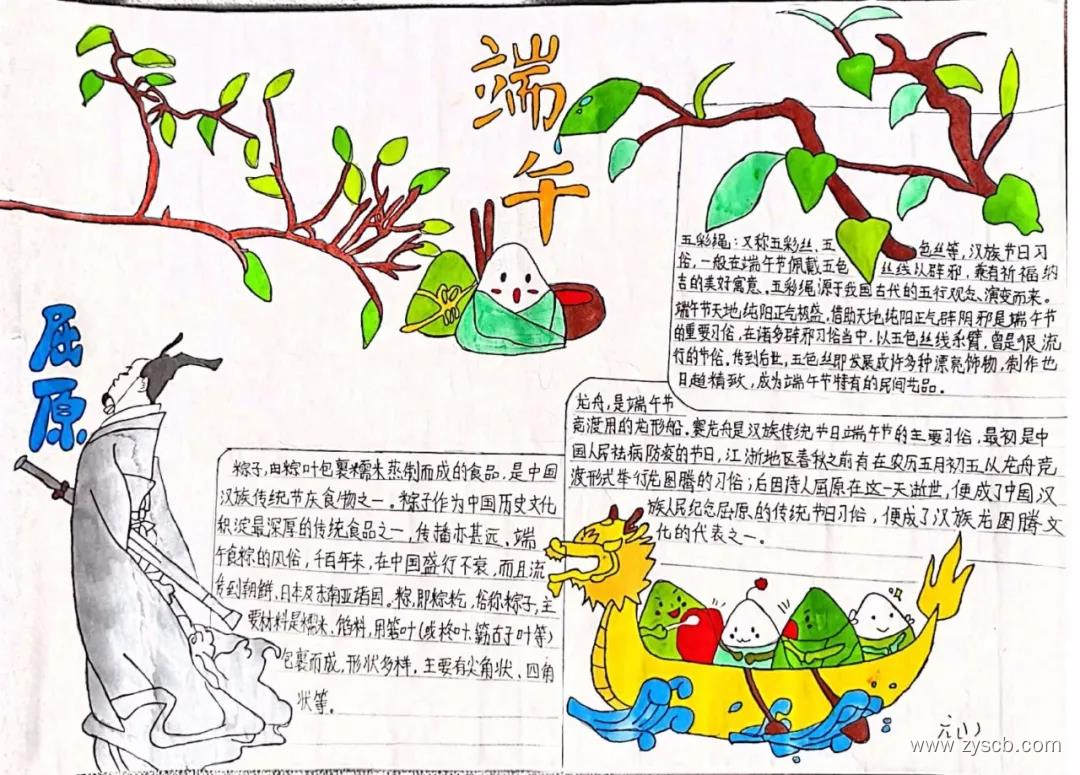 端
午
屈
原
五彩绳:又称五彩丝、五色丝等,汉族节日习
俗,一般在端午节佩戴五色丝线以辟邪,兼有祈福纳
吉的美好寓意。五彩绳源于我国古代的五行观念、演变而来。
端午节天地纯阳正气极盛,借助天地纯阳正气辟阴邪是端午节
的重要习俗,在诸多辟邪习俗当中,以五色丝线系臂,曾是很流
行的节俗,传到后世,五色丝即发展成许多种漂亮饰物,制作也
日趋精致,成为端午节特有的民间艺品。
龙舟,是端午节
竞渡用的龙形船。赛龙舟是汉族传统节日端午节的主要习俗,最初是中
国人民祛病防疫的节日,江浙地区春秋之前有在农历五月初五以龙舟竞
渡形式举行龙图腾的习俗;后因诗人屈原在这一天逝世,便成了中国汉
族人民纪念屈原的传统节日习俗,便成了汉族龙图腾文
化的代表之一。
粽子,由粽叶包裹糯米蒸制而成的食品,是中国
汉族传统节庆食物之一。粽子作为中国历史文化
积淀最深厚的传统食品之一,传播亦甚远。端
午食粽的风俗,千百年来,在中国盛行不衰,而且流
传到朝鲜、日本及东南亚诸国。粽,即粽籺,俗称粽子,主
要材料是糯米、馅料,用箬叶(或柊叶、簕古子叶等)
包裹而成,形状多样,主要有尖角状、四角
状等。
www.zyscb.com